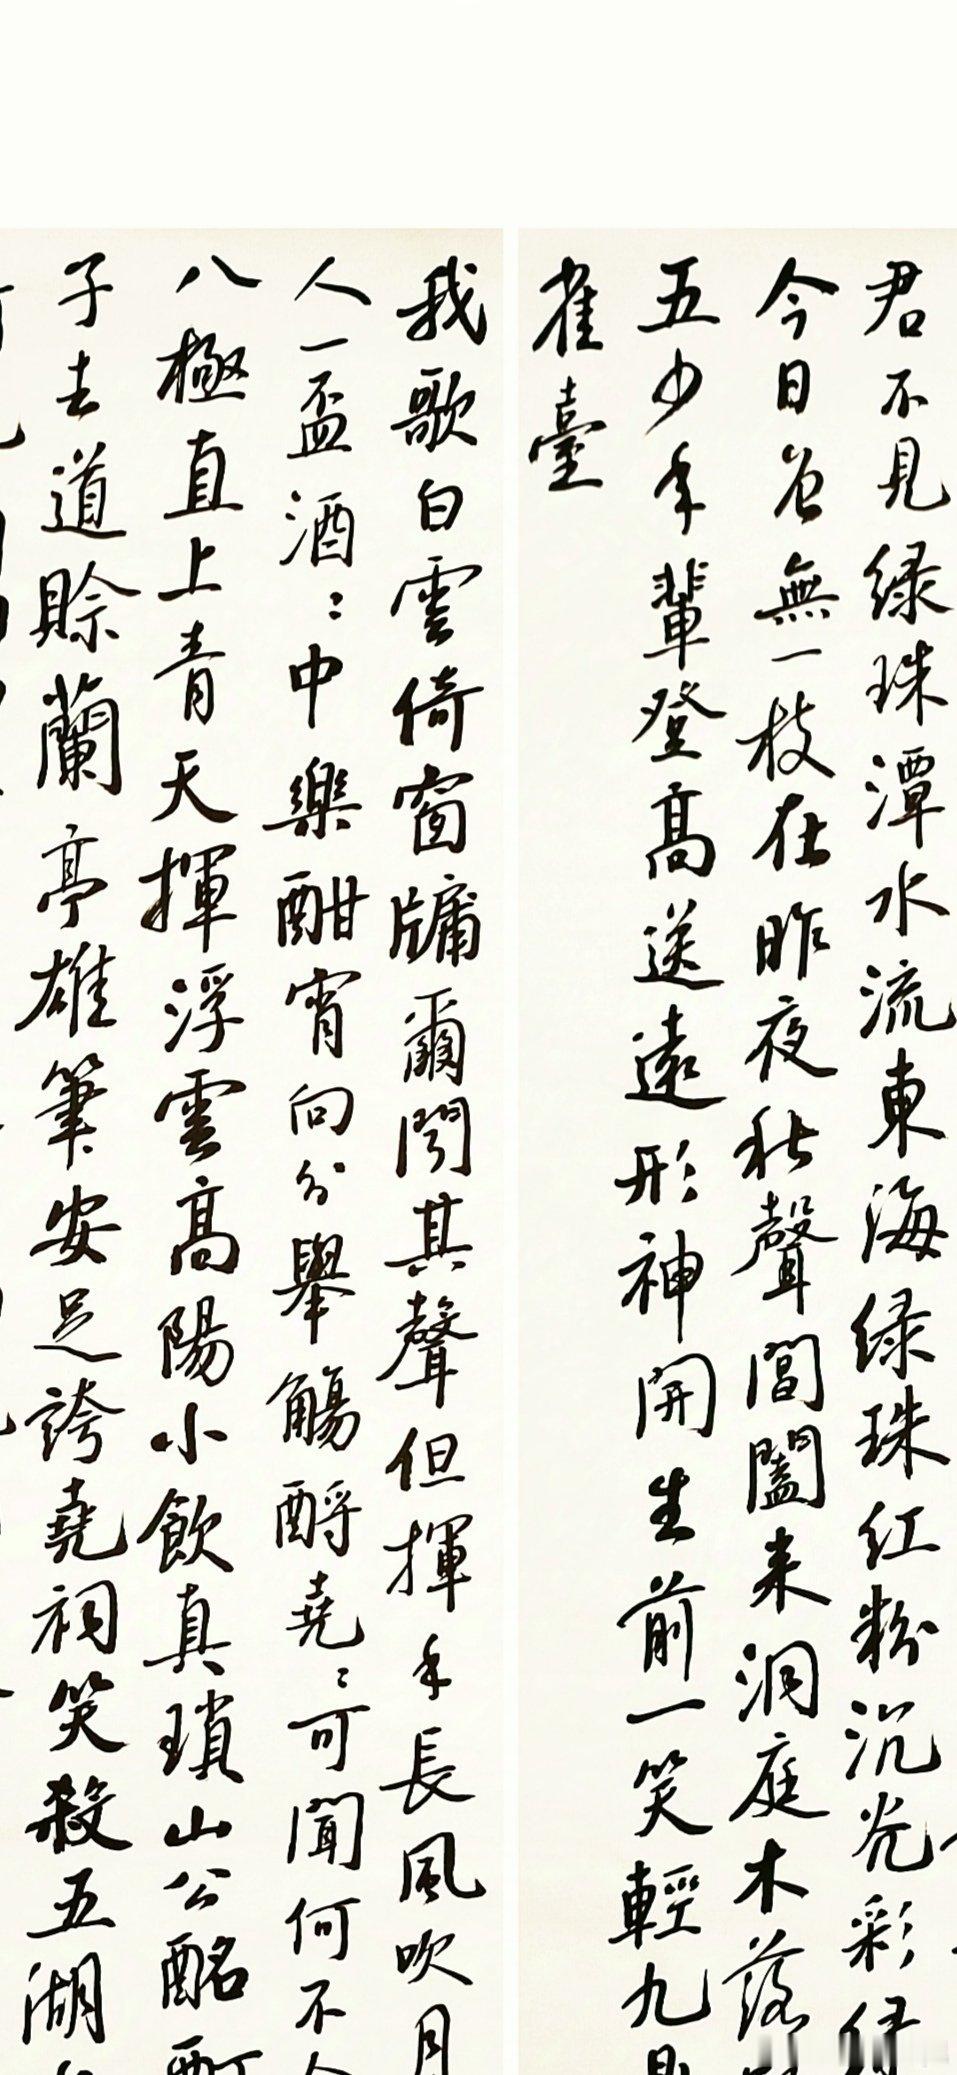 君不見緑珠潭水流東海緑珠紅粉沉光彩緑
今日曾無一枝在昨夜秋聲閶闔来洞庭木落
五少年輩登高送遠形神開生前一笑輕九鼎
雀臺
我歌白雲倚窗牖爾聞其聲但揮手長風吹月
人一盃酒〻中樂酣宵向分舉觴酹堯〻可聞何不令
八極直上青天揮浮雲高陽小飲真瑣〻山公酩酊
子去道賒蘭亭雄筆安足誇堯祠笑殺五湖